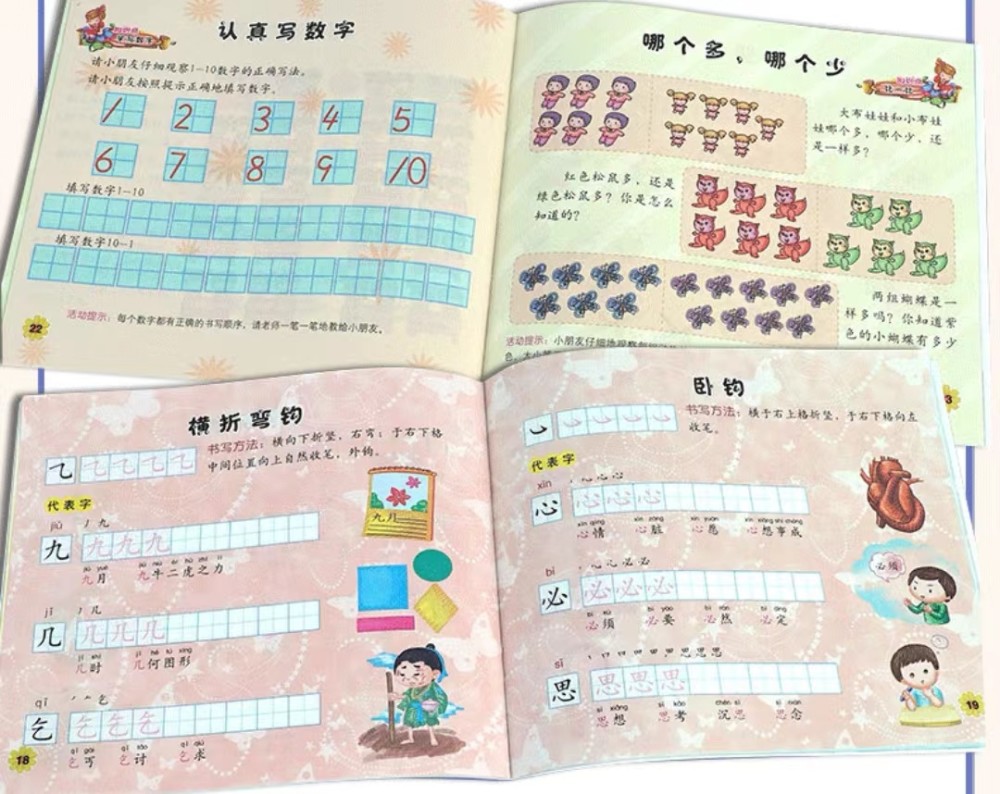 认真写数字
学写数字
请小朋友仔细观察1-10数字的正确写法。
请小朋友按照提示正确地填写数字。
1 2 3 4 5
6 7 8 9 10
填写数字1-10
填写数字10-1
活动提示：每个数字都有正确的书写顺序，请老师一笔一笔地教给小朋友。
22
哪个多，哪个少
比一比
大布娃娃和小布娃
娃哪个多，哪个少，还
是一样多？
红色松鼠多，还是
绿色松鼠多？你是怎么
知道的？
两组蝴蝶是一
样多吗？你知道紫
色的小蝴蝶有多少
活动提示：小朋友仔细地观察
3
横折弯钩
书写方法：横向下折竖，右弯；于右下格
中间位置向上自然收笔，外钩。
代表字
jiǔ
九 九 九 九
九月 九牛二虎之力
九月
jǐ
几 几 几 几
几时 几何图形
qǐ
乞 乞 乞 乞
乞丐 乞讨 乞求
18
卧钩
书写方法：横于右上格折竖，于右下格向左
收笔。
代表字
xīn
心 心 心 心
心情 心脏 心愿 心想事成
bì
必 必 必 必
必须 必要 必然 必定
必须
sī
思 思 思 思
思想 思考 沉思 思念
19